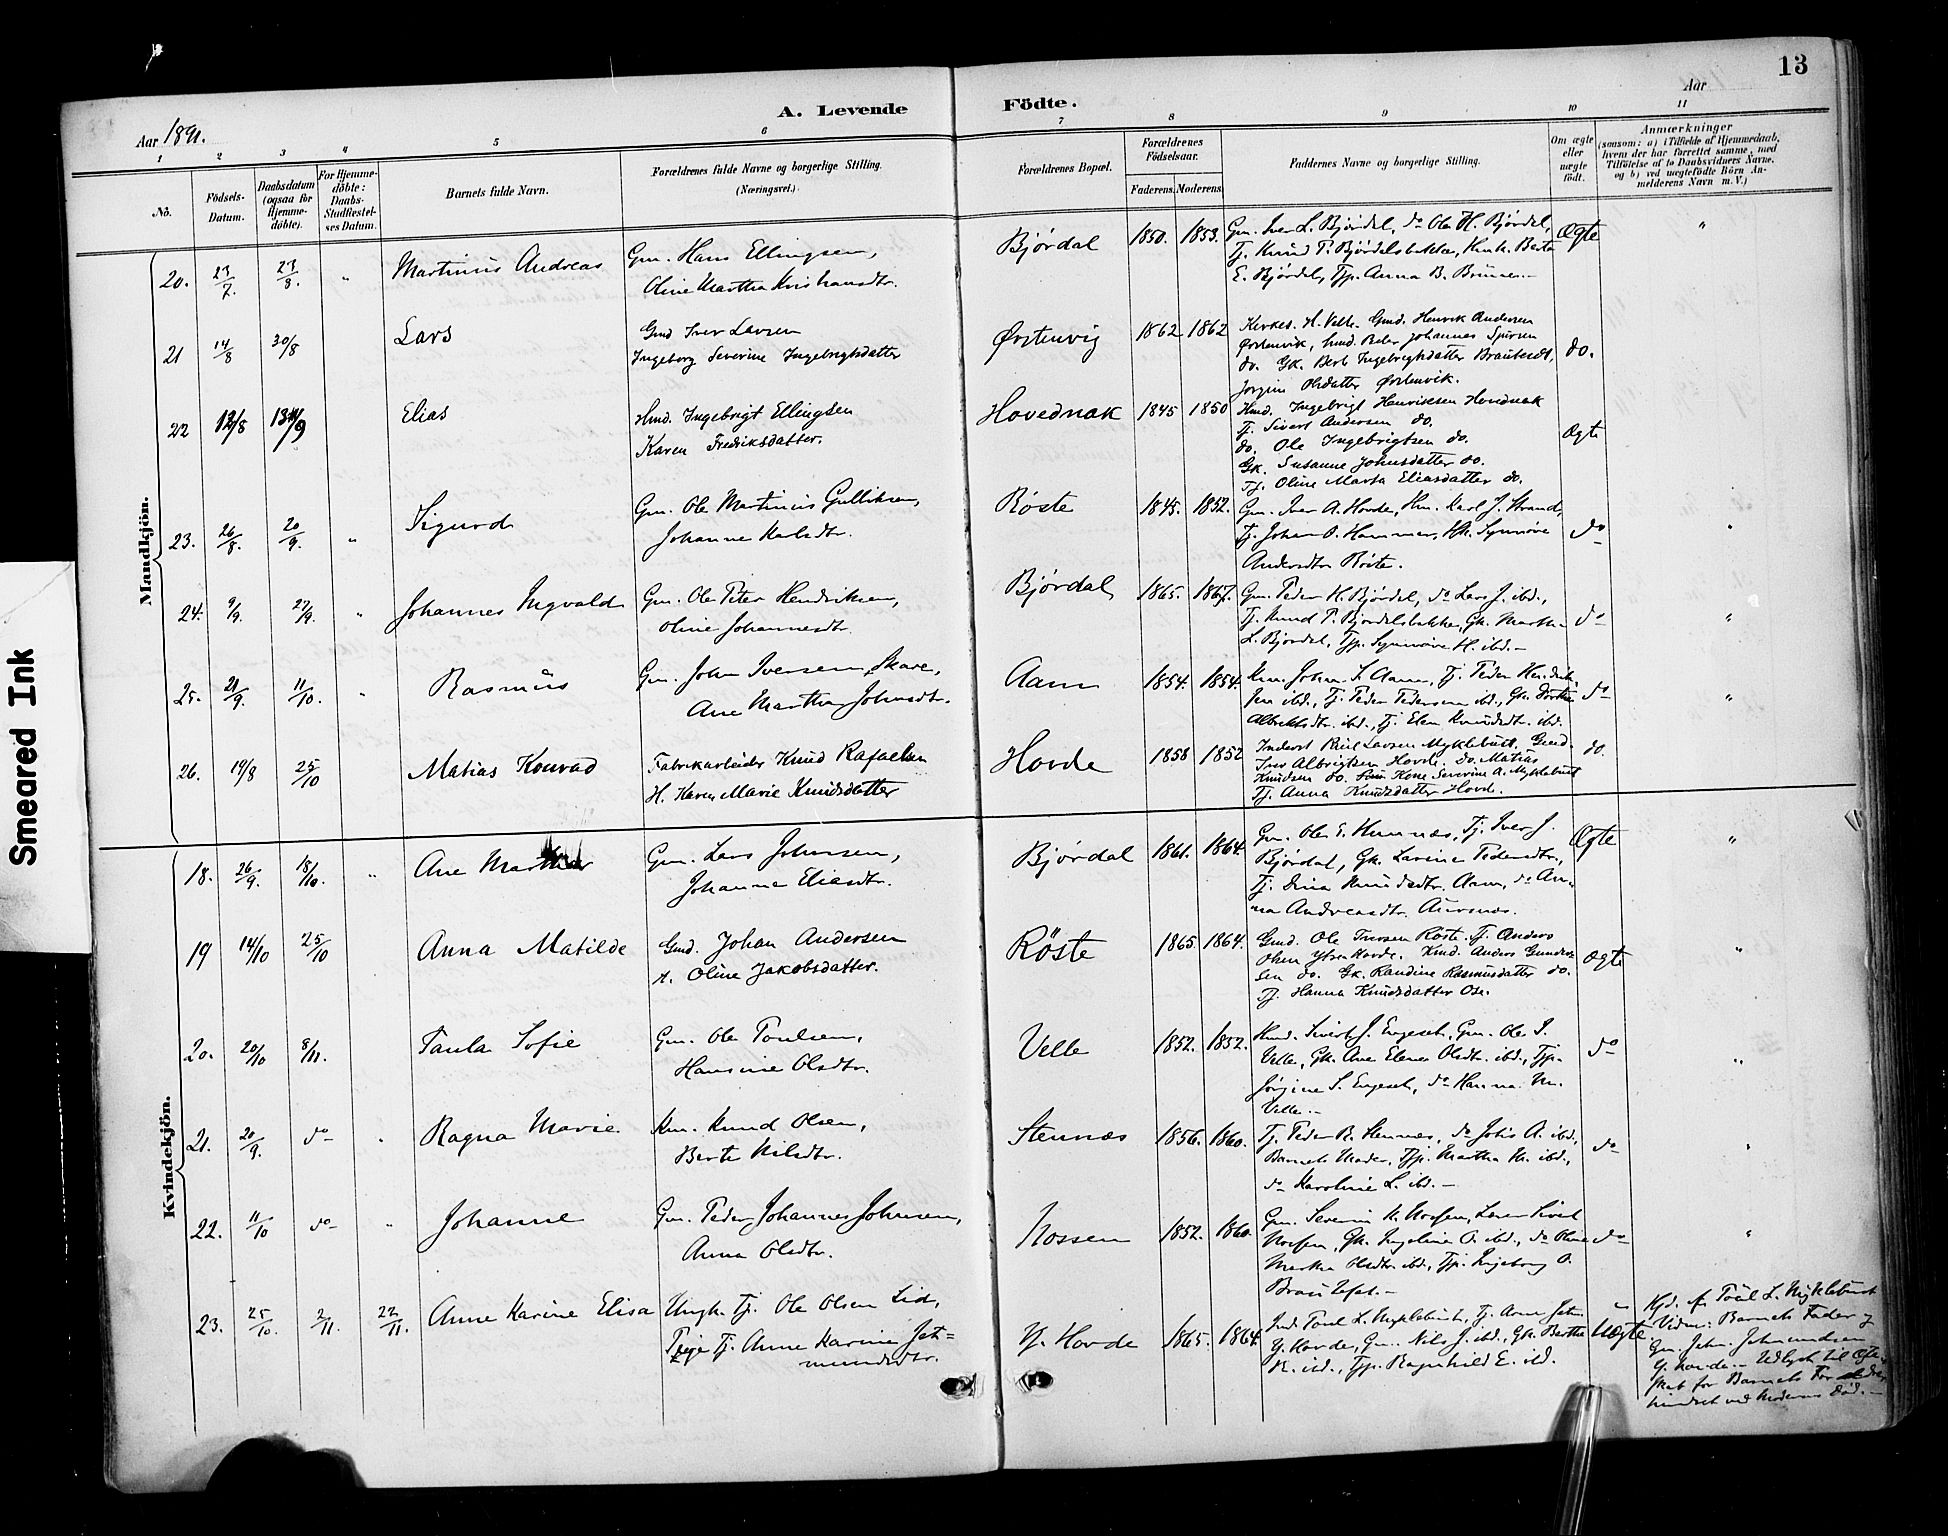 13
A. Levende Födte.
Aar 1891.
Aar
1 2 3 4 5 6 7 8 9 10 11
No.
Födsels-Datum.
Daabsdatum (ogsaa for Hjemme-döbte).
For Hjemme-döbte: Daabs-Stadfæstel-ses Datum.
Barnets fulde Navn.
Forældrenes fulde Navne og borgerlige Stilling. (Næringsvei.)
Forældrenes Bopæl.
Forældrenes Födselsaar.
Faderens. Moderens.
Faddernes Navne og borgerlige Stilling.
Om ægte eller uægte födt.
Anmærkninger
(saasom: a) i Tilfælde af Hjemmedaab, hvem der har forrettet samme, med Tilföielse af to Daabsvidners Navne, og b) ved uægtefödte Börn An-melderens Navn m. V.)
Mandkjön.
20. 23/7. 23/8. " Martinus Andreas
Gm. Hans Ellingsen,
Oline Martha Kristiansdtr.
Bjørdal 1850. 1853.
Gm. Iver L. Bjørdal, do Ole H. Bjørdal,
Tj. Knud P. Bjørdalsbakke, Kmk. Berte
E. Bjørdal, Tjp. Anna B.
Ægte "
21 14/8 30/8 Lars
Gmd Iver Larsen
Ingeborg Severine Ingebrigtsdatter
Ørstenvig 1862 1862
Kirkes. H. Velle. Gmd. Henrik Andersen
Ørstenvik, Peder Johannes
do. Gk. Berte Ingebrigtsdatter
Jorgine Olsdatter Ørstenvik.
do.
22 12/8 13/9 Elias
Hmd. Ingebrigt Ellingsen
Karen Fredriksdatter.
Hovednak 1845 1850
Hmd. Ingebrigt Henriksen Hovednak
Tj. Sivert Andersen do.
do. Ole Ingebrigtsen do.
Gk. Susanne Johnsdatter do.
Tj. Oline Marta Eliasdatter do.
Ægte
23. 26/8. 20/9. " Sigurd
Gm. Ole Martinus Gulliksen,
Johanne Karlsdtr.
Røste 1845. 1852.
Gm. Iver A. Hovde, Hm. Karl J. Strand,
Tj. Johan O. Hammer, Hk. Synnøve
Andersdtr. Røste.
do "
24. 9/9. 27/9. " Johannes Ingvald
Gm. Ole Peter Hendriksen,
Oline Johannesdtr.
Bjørdal 1865. 1867.
Gm. Peder K. Bjørdal, do Lars J. ibd.,
Tj. Knud P. Bjørdalsbakke, Gk. Martha
L. Bjørdal, Tjp. Synnøve H. ibd. –
do "
25. 21/9. 11/10. " Rasmus
Gm. John Iversen Skare,
Ane Martha Johnsdtr.
Aam 1854. 1854.
Km. Johan S. Aam, Tj. Peder Hendrik-
sen ibd., Tj. Peder Pedersen ibd., Gk. Dorthe
Albrektsdtr. ibd., Tj. Elen Knudsdtr. ibd.
do "
26. 19/8 25/10 Matias Konrad
Fabrikarbeider Knud Rafaelsen
H. Karen Marie Knudsdatter
Hovde 1858 1852
Inderst Paul Larsen Myklebust. Gmd.
Iver Albrigtsen Hovde. do. Matias
Knudsen do. Kone Severine A. Myklebust
Tj. Anna Knudsdatter Hovd.
do.
Kvindekjön.
18. 26/9. 18/10. " Ane Martha
Gm. Lars Johnsen,
Johanne Eliasdtr.
Bjørdal 1861. 1864.
Gm. Ole E. Humnæs, Tj. Iver J.
Bjørdal, Gk. Lavine Pedersdtr.,
Tj. Knudsdtr. Aam, do An-
na Andreasdtr. Aursnæs.
Ægte "
19 14/10 25/10 Anna Matilde
Gmd. Johan Andersen
H. Oline Jakobsdatter.
Røste 1865. 1864.
Gmd. Ole Iversen Røste. Tj. Anders
Olsen Ytre Hovde. Kmd. Anders Gunder-
sen do. Gk. Randine Rasmusdatter do.
Tj. Hanna Knudsdatter Ose.
Ægte "
20. 20/10 8/11. Paula Sofie
Gm. Ole Poulsen,
Hansine Olsdtr.
Velle 1852. 1852.
Kmd. Sivert J. Engeset, Gm. Ole I.
Velle, Gk. Ane Elene Olsdtr. ibd., Tjp.
Jørgine S. Engeset, do Hanna M.
Velle. –
do "
21. 20/9. do " Ragna Marie
Km. Knud Olsen,
Berte Nilsdtr.
Stennæs 1856. 1860.
Tj. Peder R. Stennæs, do Johs A. ibd,
Barnets Moder, Tjp. Martha K. ibd.,
do Karoline L. ibd. –
do "
22. 11/10 do " Johanne
Gm. Peder Johannes Johnsen,
Anna Olsdtr.
Nossen 1852. 1860.
Gm. Severin K. Nossen, Lærer Sivert
Nossen, Gk. Ingeline O. ibd., do Oline
Martha Olsdtr. ibd., Tjp. Ingeborg O.
do "
23. 25/10. 2/11. 22/11. Anne Karine Elisa
Ungk. Tj. Ole Olsen Lid,
Pige Tj. Anne Karine Jet-
mundsdtr.
Y. Hovde 1865. 1864.
Ind. Poul L. Myklebust, Tj. Arne Jetm.
Y. Hovde, Gm. Nils J. ibd., Gk. Berthe
R. ibd., Tjp. Ragnhild E. ibd.
Uægte
Hjd. af Poul L. Myklebust
Vidner: Barnets Fader og
Gm. John Johnsen
Y. Hovde. – Udlyst til Ægte-
skab for Barnets Forældre,
hindret ved Moderens Død. –
Smeared Ink